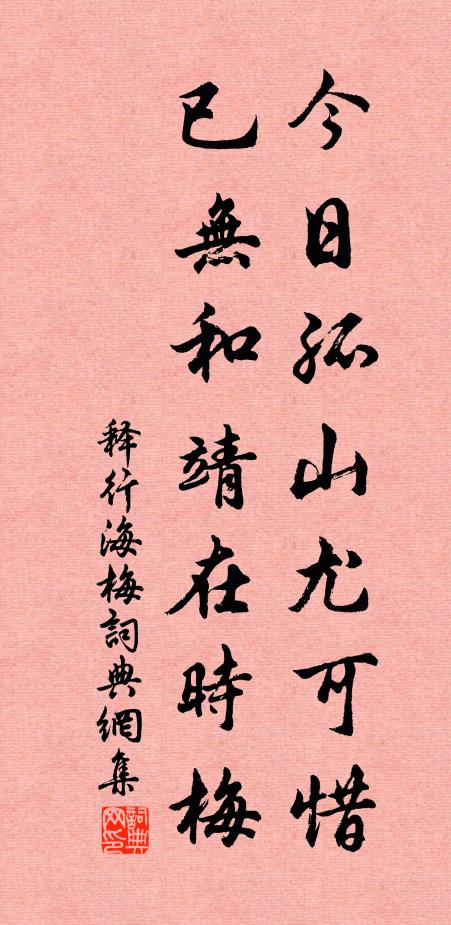 今日孤山尤可惜
已無和靖在時梅
释行海梅詞典網集
詞典网印